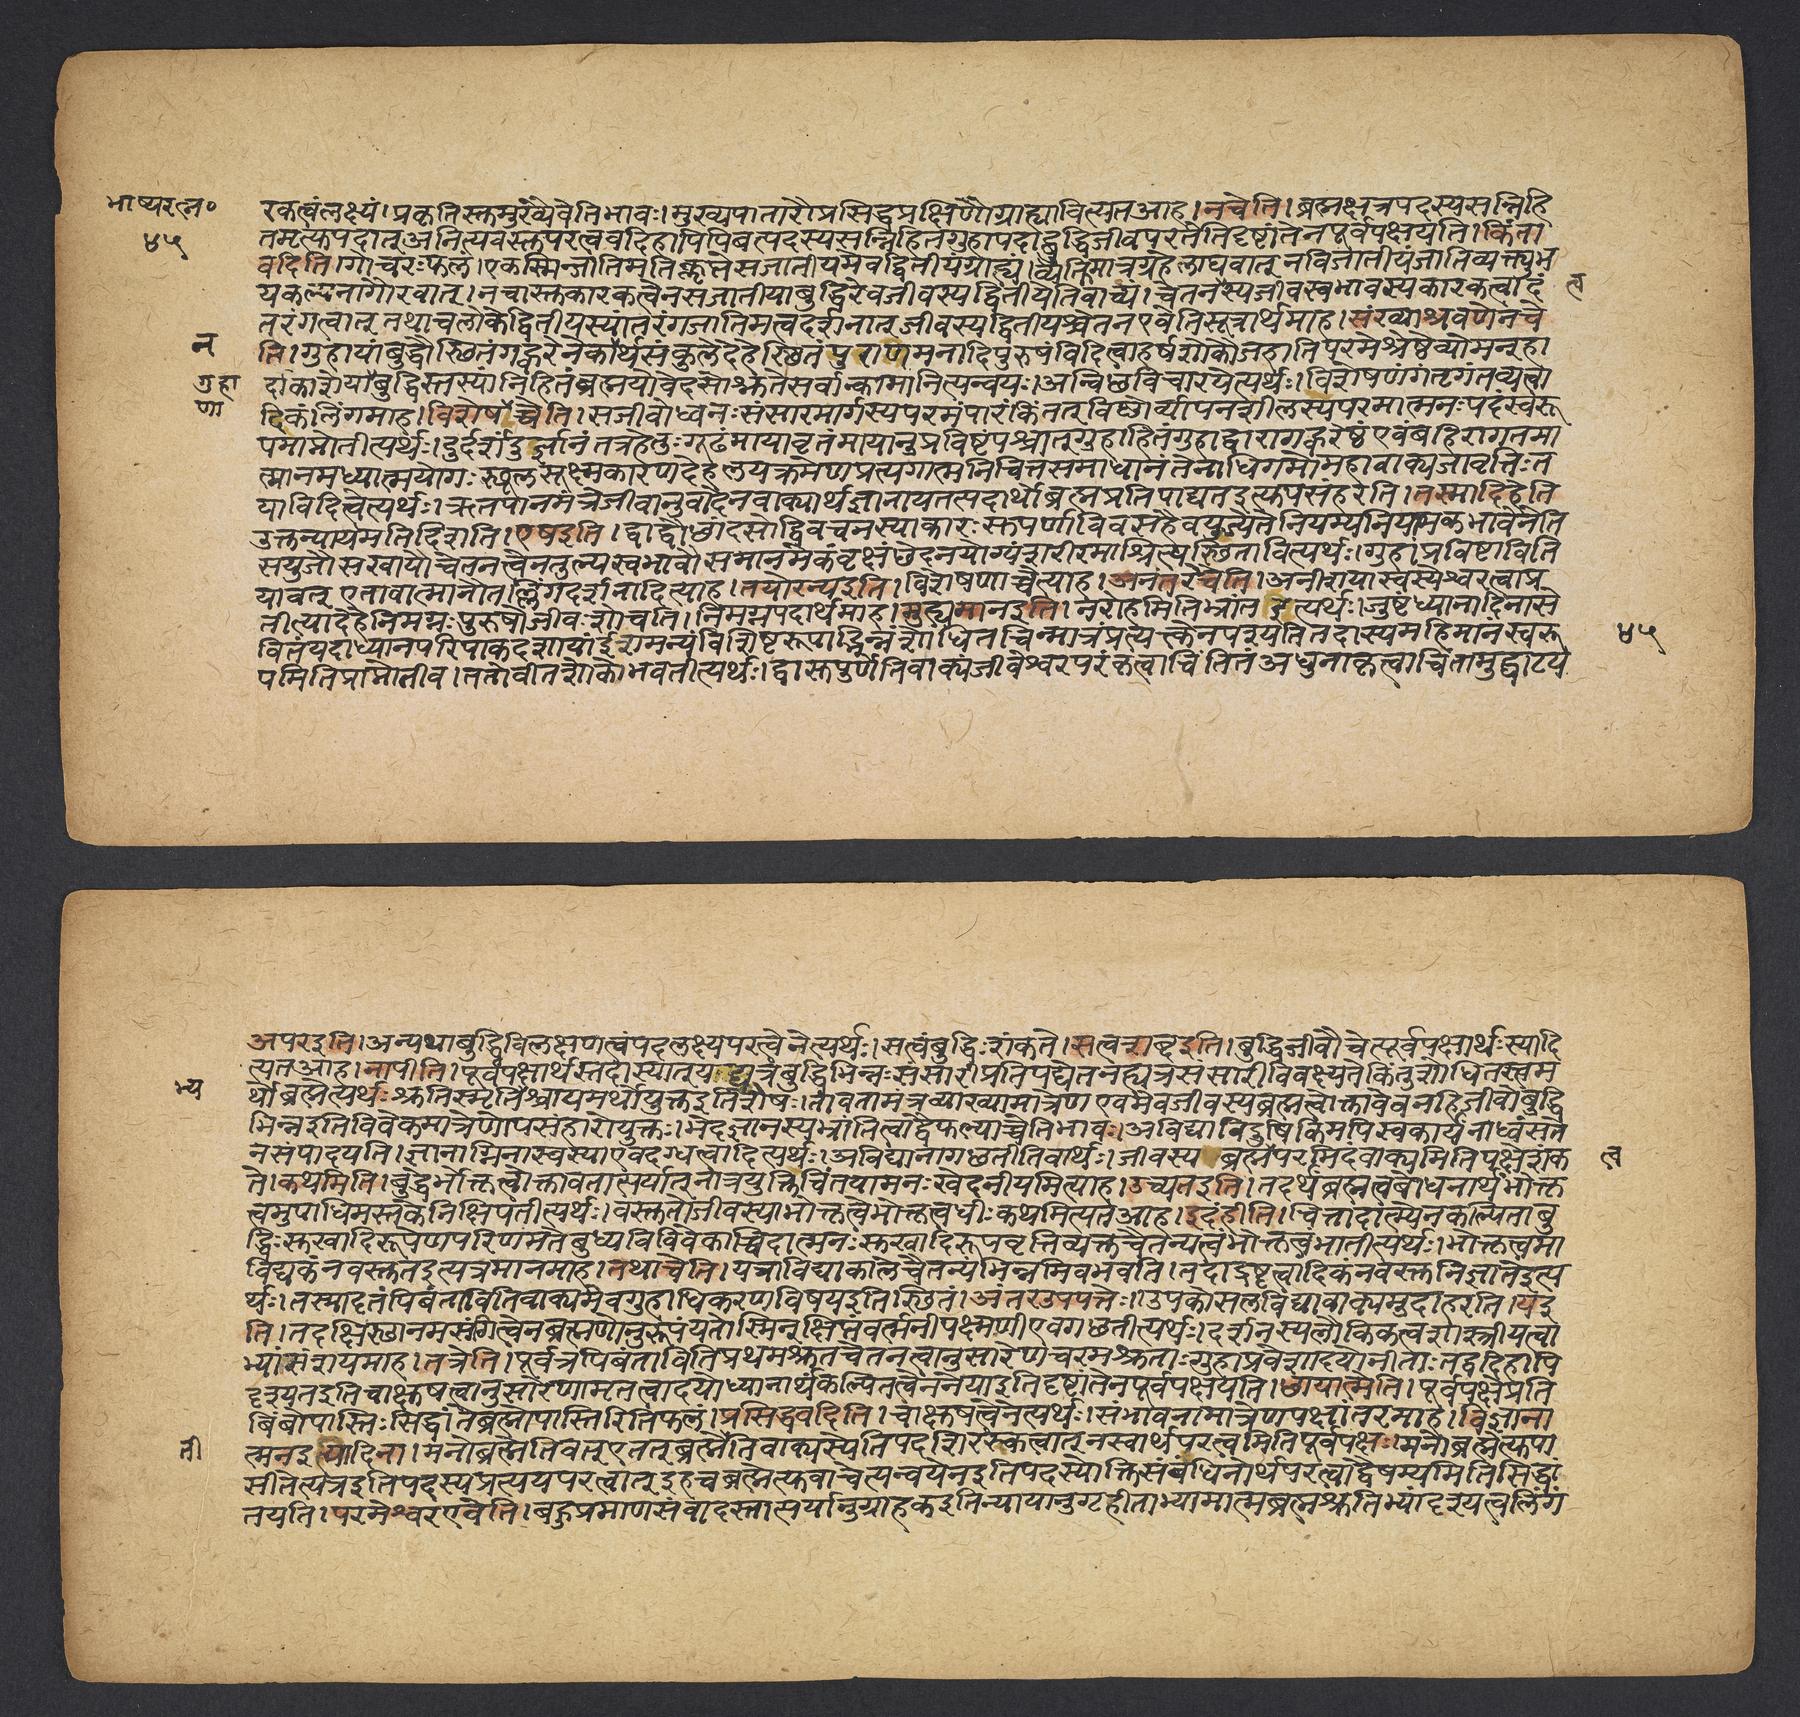 भाष्यरत्न०
४५
रकत्वंलक्ष्यं।प्रकृतिस्तुमुख्यैवेतिभावः।मुख्यपातारौप्रसिद्धपक्षिणौग्राह्यावित्यतआह।नचेति।ब्रह्मक्षत्रपदस्यसन्निहि
तमृत्युपदात्अनित्यवस्तुपरत्ववदिहापिपिबत्पदस्यसन्निहितगुहापदाद्बुद्धिजीवपरतेतिदृष्टांतेनपूर्वपक्षयति।किंता
वदिति।गोचरःफलं।एकस्मिन्जातिमतिकॢप्तेसजातीयमेवद्वितीयंग्राह्यं।व्यक्तिमात्रग्रहेलाघवात्नविजातीयंजातिव्यक्त्युभ
यकल्पनागौरवात्।नचास्तुकारकत्वेनसजातीयाबुद्धिरेवजीवस्यद्वितीयेतिवाच्यं।चेतनत्वस्यजीवस्वभावस्यकारकत्वादं
त्व
तरंगत्वात्तथाचलोकेद्वितीयस्यांतरंगजातिमत्वदर्शनात्जीवस्यद्वितीयश्चेतनएवेतिसूत्रार्थमाह।संख्याश्रवणेनचे
न
ति।गुहायांबुद्धौस्थितंगह्वरेनेकार्थसंकुलेदेहेस्थितंपुराणमनादिपुरुषंविदित्वाहर्षशोकौजहातिपरमेश्रेष्ठेव्योमन्हा
गुहा
णा
र्दाकाशेयाबुद्धिस्तस्यांनिहितंब्रह्मयोवेदसोश्नुतेसर्वान्कामानित्यन्वयः।अन्विछविचारयेत्यर्थः।विशेषणंगंतृगंतव्यत्वा
दिकंलिंगमाह।विशेषणाच्चेति।सजीवोध्वनःसंसारमार्गस्यपरमंपारंकिंतत्विष्णोर्व्यापनशीलस्यपरमात्मनःपदंस्वरू
पमाप्नोतीत्यर्थः।दुर्दर्शंदुर्ज्ञानंतत्रहेतुःगूढंमायावृतंमायानुप्रविष्टंपश्चात्गुहाहितंगुहाद्वारागह्वरेष्ठंएवंबहिरागतमा
त्मानमध्यात्मयोगःस्थूलसूक्ष्मकारणदेहलयक्रमेणप्रत्यगात्मनिचित्तसमाधानंतेनाधिगमोमहावाक्यजावृत्तिःत
याविदित्वेत्यर्थः।ऋतपानमंत्रेजीवानुवादेनवाक्यार्थज्ञानायतत्पदार्थोब्रह्मप्रतिपाद्यतइत्युपसंहरति।तस्मादिहेति
उक्तन्यायमतिदिशति।एषइति।द्वाद्वौछांदसोद्विवचनस्याकारःसुपर्णाविवसहैवयुज्येतेनियम्यनियामकभावेनेति
सयुजौसखायौचेतनत्वेनतुल्यस्वभावौसमानमेकंवृक्षंछेदनयोग्यंशरीरमाश्रित्यस्थितावित्यर्थः।गुहांप्रविष्टाविति
यावत्एतावात्मानौतल्लिंगदर्शनादित्याह।तयोरन्यइति।विशेषणाच्चेत्याह।अनंतरेचेति।अनीशयास्वस्येश्वरत्वाप्र
तीत्यादेहेनिमग्नःपुरुषोजीवःशोचति।निमग्नपदार्थमाह।मुह्यमानइति।नरोहमितिभ्रांतइत्यर्थः।जुष्टंध्यानादिनासे
वितंयदाध्यानपरिपाकदशायांईशमन्यंविशिष्टरूपाद्भिन्नंशोधितचिन्मात्रंप्रत्यक्त्वेनपश्यतितदास्यमहिमानंस्वरू
४५
पमितिप्राप्नोतीव।ततोवीतशोकोभवतीत्यर्थः।द्वासुपर्णेतिवाक्यंजीवेश्वरपरंकृत्वाचिंतितंअधुनाकृत्वाचिंतामुद्घाटय
अपरइति।अन्यथाबुद्धिविलक्षणत्वंपदलक्ष्यपरत्वेनेत्यर्थः।सत्वंबुद्धिःशंकते।सत्वशब्दइति।बुद्धिजीवौचेत्पूर्वपक्षार्थःस्यादि
त्यतआह।नापीति।पूर्वपक्षार्थस्तदास्यात्यद्यत्रबुद्धिभिन्नःसंसारीप्रतिपद्येतनह्यत्रसंसारीविवक्ष्यतेकिंतुशोधितस्त्वम
भ्य
र्थोब्रह्मेत्यर्थःश्रुतिस्मृतिभ्यांचायमर्थोयुक्तइतिशेषः।तावतामंत्रव्याख्यामात्रेणएवमेवजीवस्यब्रह्मत्वोक्तावेवनहिजीवोबुद्धि
भिन्नइतिविवेकमात्रेणोपसंहारोयुक्तः।भेदज्ञानस्यभ्रांतित्वाद्वैफल्याच्चेतिभावः।अविद्याविदुषिकिमपिस्वकार्यंनाध्वंसते
नसंपादयति।ज्ञानाग्निनास्वस्याएवदग्धत्वादित्यर्थः।अविद्यानागछतीतिवार्थः।जीवस्य ब्रह्मपरमिदंवाक्यमितिपक्षेशंक
त्व
ते।कथमिति।बुद्धेर्भोक्तृत्वोक्तावतात्पर्यान्नात्रयुक्तिचिंतयामनःखेदनीयमित्याह।उच्यतइति।तदर्थंब्रह्मत्वबोधनार्थंभोक्तृ
त्वमुपाधिमस्तकेनिक्षिपतीत्यर्थः।वस्तुतोजीवस्याभोक्तृत्वेभोक्तृत्वधीःकथमित्यतआह।इदंहीति।चित्तादात्म्येनकल्पिताबु
द्धिःसुखादिरूपेणपरिणमतेबुध्यविविवेकाच्चिदात्मनःसुखादिरूपवृत्तिव्यक्तचैतन्यत्वंभोक्तृत्वंभातीत्यर्थः।भोक्तृत्वमा
विद्यकंनवस्तुतइत्यत्रमानमाह।तथाचेति।यत्राविद्याकालेचैतन्यंभिन्नमिवभवति।तदाद्रष्टृत्वादिकंनवस्तुनिज्ञातेइत्य
र्थः।तस्मादृतंपिबंतावितिवाक्यमेवगुहाधिकरणविषयइतिस्थितं।अंतरउपपत्तेः।उपकोसलविद्यावाक्यमुदाहरति।यइ
ति।तदक्षिस्थानमसंगित्वेनब्रह्मणोनुरूपंयतोस्मिन्क्षिप्तंवर्त्मनीपक्ष्मणीएवगछतीत्यर्थः।दर्शनस्यलौकिकत्वशास्त्रीयत्वा
भ्यांसंशयमाह।तत्रेति।पूर्वत्रपिबंतावितिप्रथमश्रुतचेतनत्वानुसारेणचरमश्रुताःगुहाप्रवेशादयोनीताःतद्वदिहापि
दृश्यतइतिचाक्षुषत्वानुसारेणामृतत्वादयोध्यानार्थंकल्पितत्वेननेयाइतिदृष्टांतेनपूर्वपक्षयति।छायात्मेति।पूर्वपक्षेप्रति
बिंबोपास्तिःसिद्धांतेब्रह्मोपास्तिरितिफलं।प्रसिद्धवदिति।चाक्षुषत्वेनेत्यर्थः।संभावनामात्रेणपक्षांतरमाह।विज्ञाना
त्मनइत्यादिना।मनोब्रह्मेतिवत्एतत्ब्रह्मेतिवाक्यस्येतिपदशिरस्कत्वात्नस्वार्थपरत्वमितिपूर्वपक्षः।मनोब्रह्मेत्युपा
ती
सीतेत्यत्रइतिपदस्यप्रत्ययपरत्वात्इहचब्रह्मेत्युवाचेत्यन्वयेनइतिपदस्योक्तिसंबंधिनार्थपरत्वाद्वैषम्यमितिसिद्धां
तयति।परमेश्वरएवेति।बहुप्रमाणसंवादस्तात्पर्यानुग्राहकइतिन्यायानुगृहीताभ्यामात्मब्रह्मश्रुतिभ्यांदृश्यत्वलिंगं